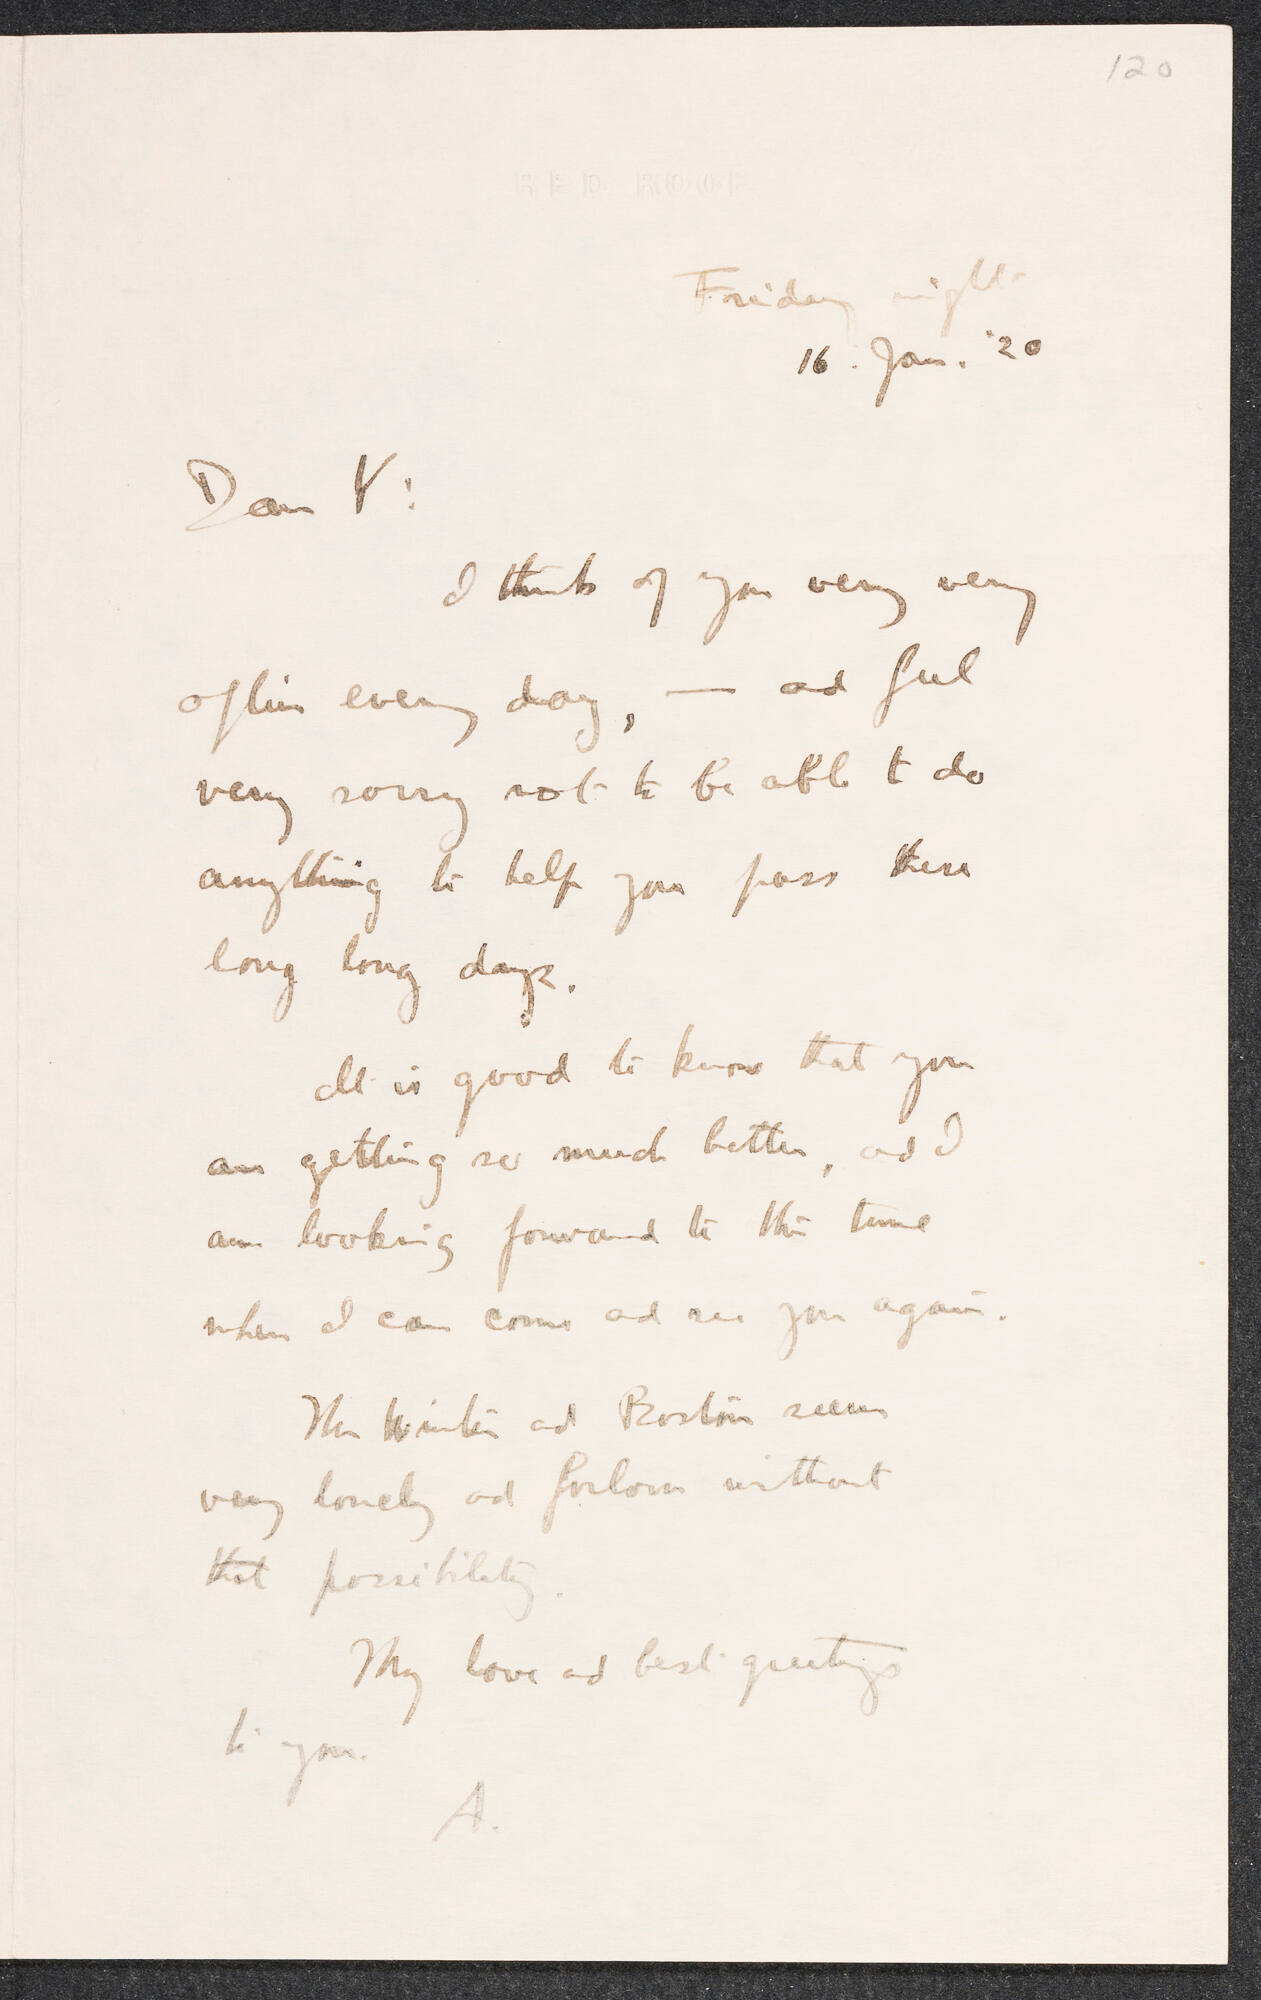 120
RED ROOF
Friday night
16. Jan. '20
Dear Y:
I think of you very very
often every day, — and feel
very sorry not to be able to do
anything to help you pass these
long long days.
It is good to know that you
are getting so much better, and I
am looking forward to the time
when I can come and see you again.
The Winter and Boston seem
very lonely and forlorn without
that possibility.
My love and best greetings
to you.
A.